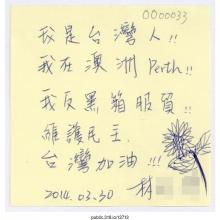 0000033
我是台灣人!!
我在澳洲Perth!!
我反黑箱服貿!!
維護民主,
台灣加油!!!
2014.03.30 林
public.318.io/12713